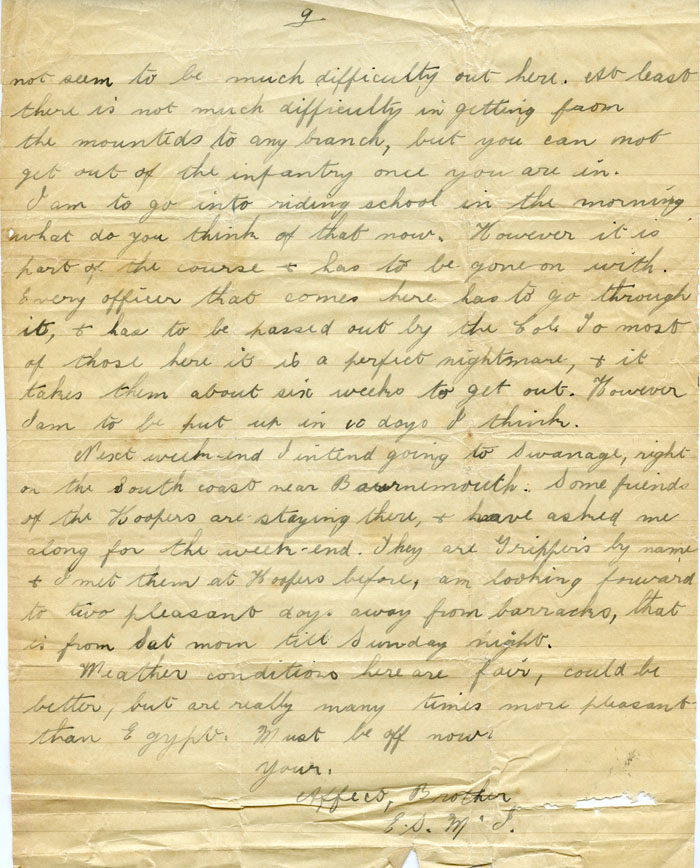 9
not seem to be much difficulty out here. At least
there is not much difficulty in getting from
the mounteds to any branch, but you can not
get out of the infantry once you are in.
I am to go into riding school in the morning
what do you think of that now. However it is
part of the course & has to be gone on with.
Every officer that comes here has to go through
it, & has to be passed out by the Col. To most
of those here it is a perfect nightmare, & it
takes them about six weeks to get out. However
I am to be put up in 10 days I think.
Next week-end I intend going to Swanage, right
on the South coast near Bournemouth. Some friends
of the Hoopers are staying there, & have asked me
along for the week-end. They are Gripper's by name
& I met them at Hoopers before, am looking forward
to two pleasant days away from barracks, that
is from Sat morn till Sunday night.
Weather conditions here are fair, could be
better, but are really many times more pleasant
than Egypt. Must be off now.
Your.
Affect, Brother
E. S. Mc I.